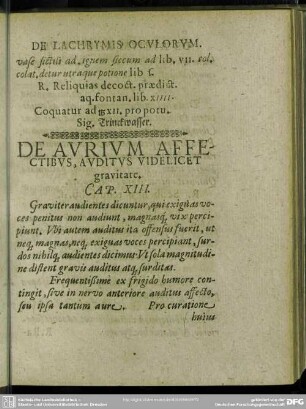 DE LACHRYMIS OCVLORVM.
vase fictili ad ignem siccum ad lib. VII. col-
colat, detur utraque potione lib ſ.
R. Reliquias decoct. prædict.
aq. fontan. lib. XIIII.
Coquatur ad XII. pro potu.
Sig. Trinckwasser.
DE AVRIVM AFFE-
CTIBVS, AVDITVS VIDELICET
gravitate.
CAP. XIII.
Graviter audientes dicuntur, qui exiguas vo-
ces penitus non audiunt, magnasq́; vix perci-
piunt. Vbi autem auditus ita offensus fuerit, ut
neq́; magnas, neq́; exiguas voces percipiant, sur-
dos nihilq́; audientes dicimus: Vt sola magnitudi-
ne distent gravis auditus atq́; surditas.
Frequentissime ex frigido humore con-
tingit, sive in nervo anteriore auditus affecto,
seu ipsa tantum aure. Pro curatione
huius